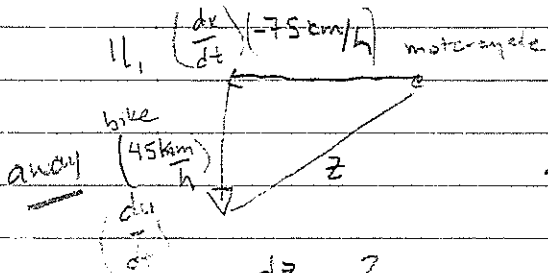 11. (dx/dt) (-75 km/h) motorcycle
bike
away (45 km/h)
z
dz ?